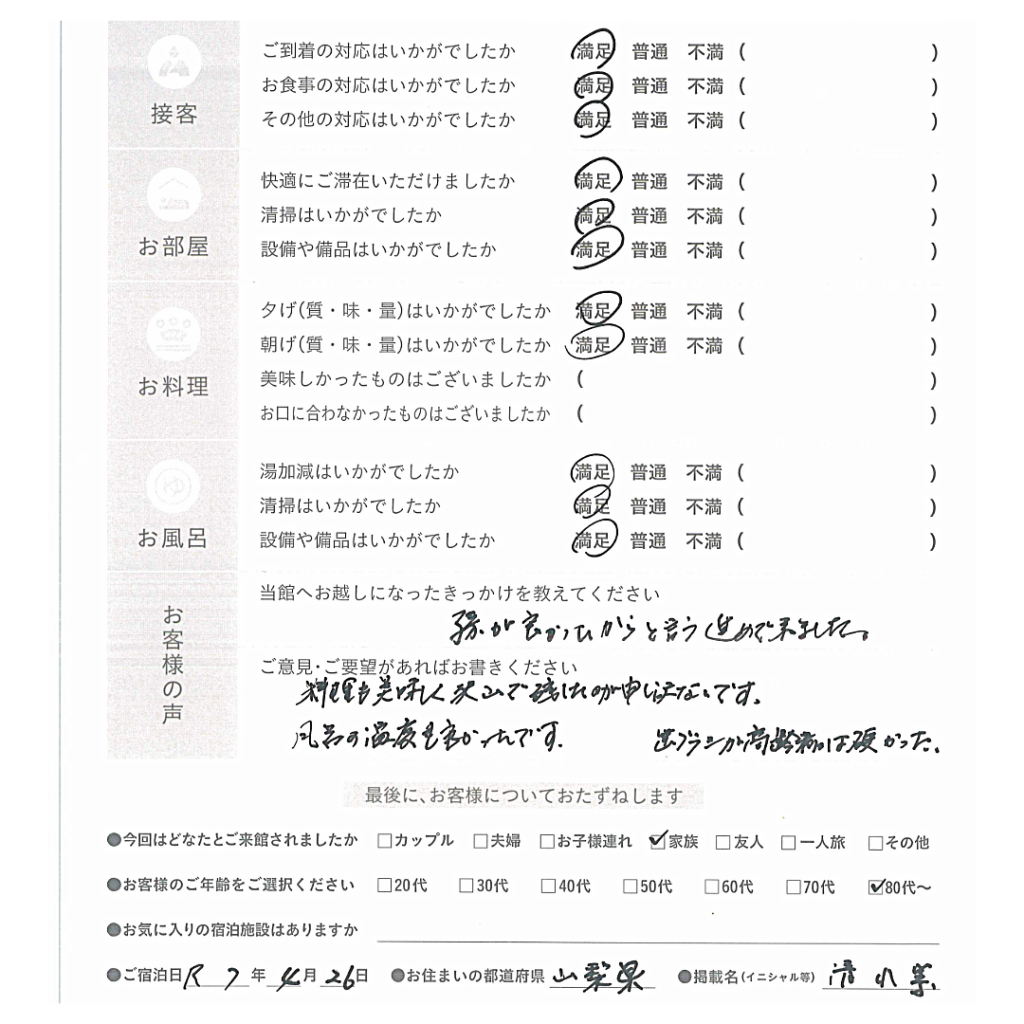 接客
ご到着の対応はいかがでしたか 満足 普通 不満 ( )
お食事の対応はいかがでしたか 満足 普通 不満 ( )
その他の対応はいかがでしたか 満足 普通 不満 ( )
お部屋
快適にご滞在いただけましたか 満足 普通 不満 ( )
清掃はいかがでしたか 満足 普通 不満 ( )
設備や備品はいかがでしたか 満足 普通 不満 ( )
お料理
夕げ(質・味・量)はいかがでしたか 満足 普通 不満 ( )
朝げ(質・味・量)はいかがでしたか 満足 普通 不満 ( )
美味しかったものはございましたか ( )
お口に合わなかったものはございましたか ( )
ゆ
お風呂
湯加減はいかがでしたか 満足 普通 不満 ( )
清掃はいかがでしたか 満足 普通 不満 ( )
設備や備品はいかがでしたか 満足 普通 不満 ( )
お客様の声
当館へお越しになったきっかけを教えてください
孫が良かったからと言う進めで来ました。
ご意見・ご要望があればお書きください
料理も美味しく沢山で残したのが申し訳ないです。
風呂の温度も良かったです.
歯ブラシが高齢者には硬かった.
最後に、お客様についておたずねします
●今回はどなたとご来館されましたか □カップル □夫婦 □お子様連れ ☑家族 □友人 □一人旅 □その他
●お客様のご年齢をご選択ください □20代 □30代 □40代 □50代 □60代 □70代 ☑80代～
●お気に入りの宿泊施設はありますか
●ご宿泊日R 7年 4月 26日 ●お住まいの都道府県 山梨県 ●掲載名(イニシャル等)